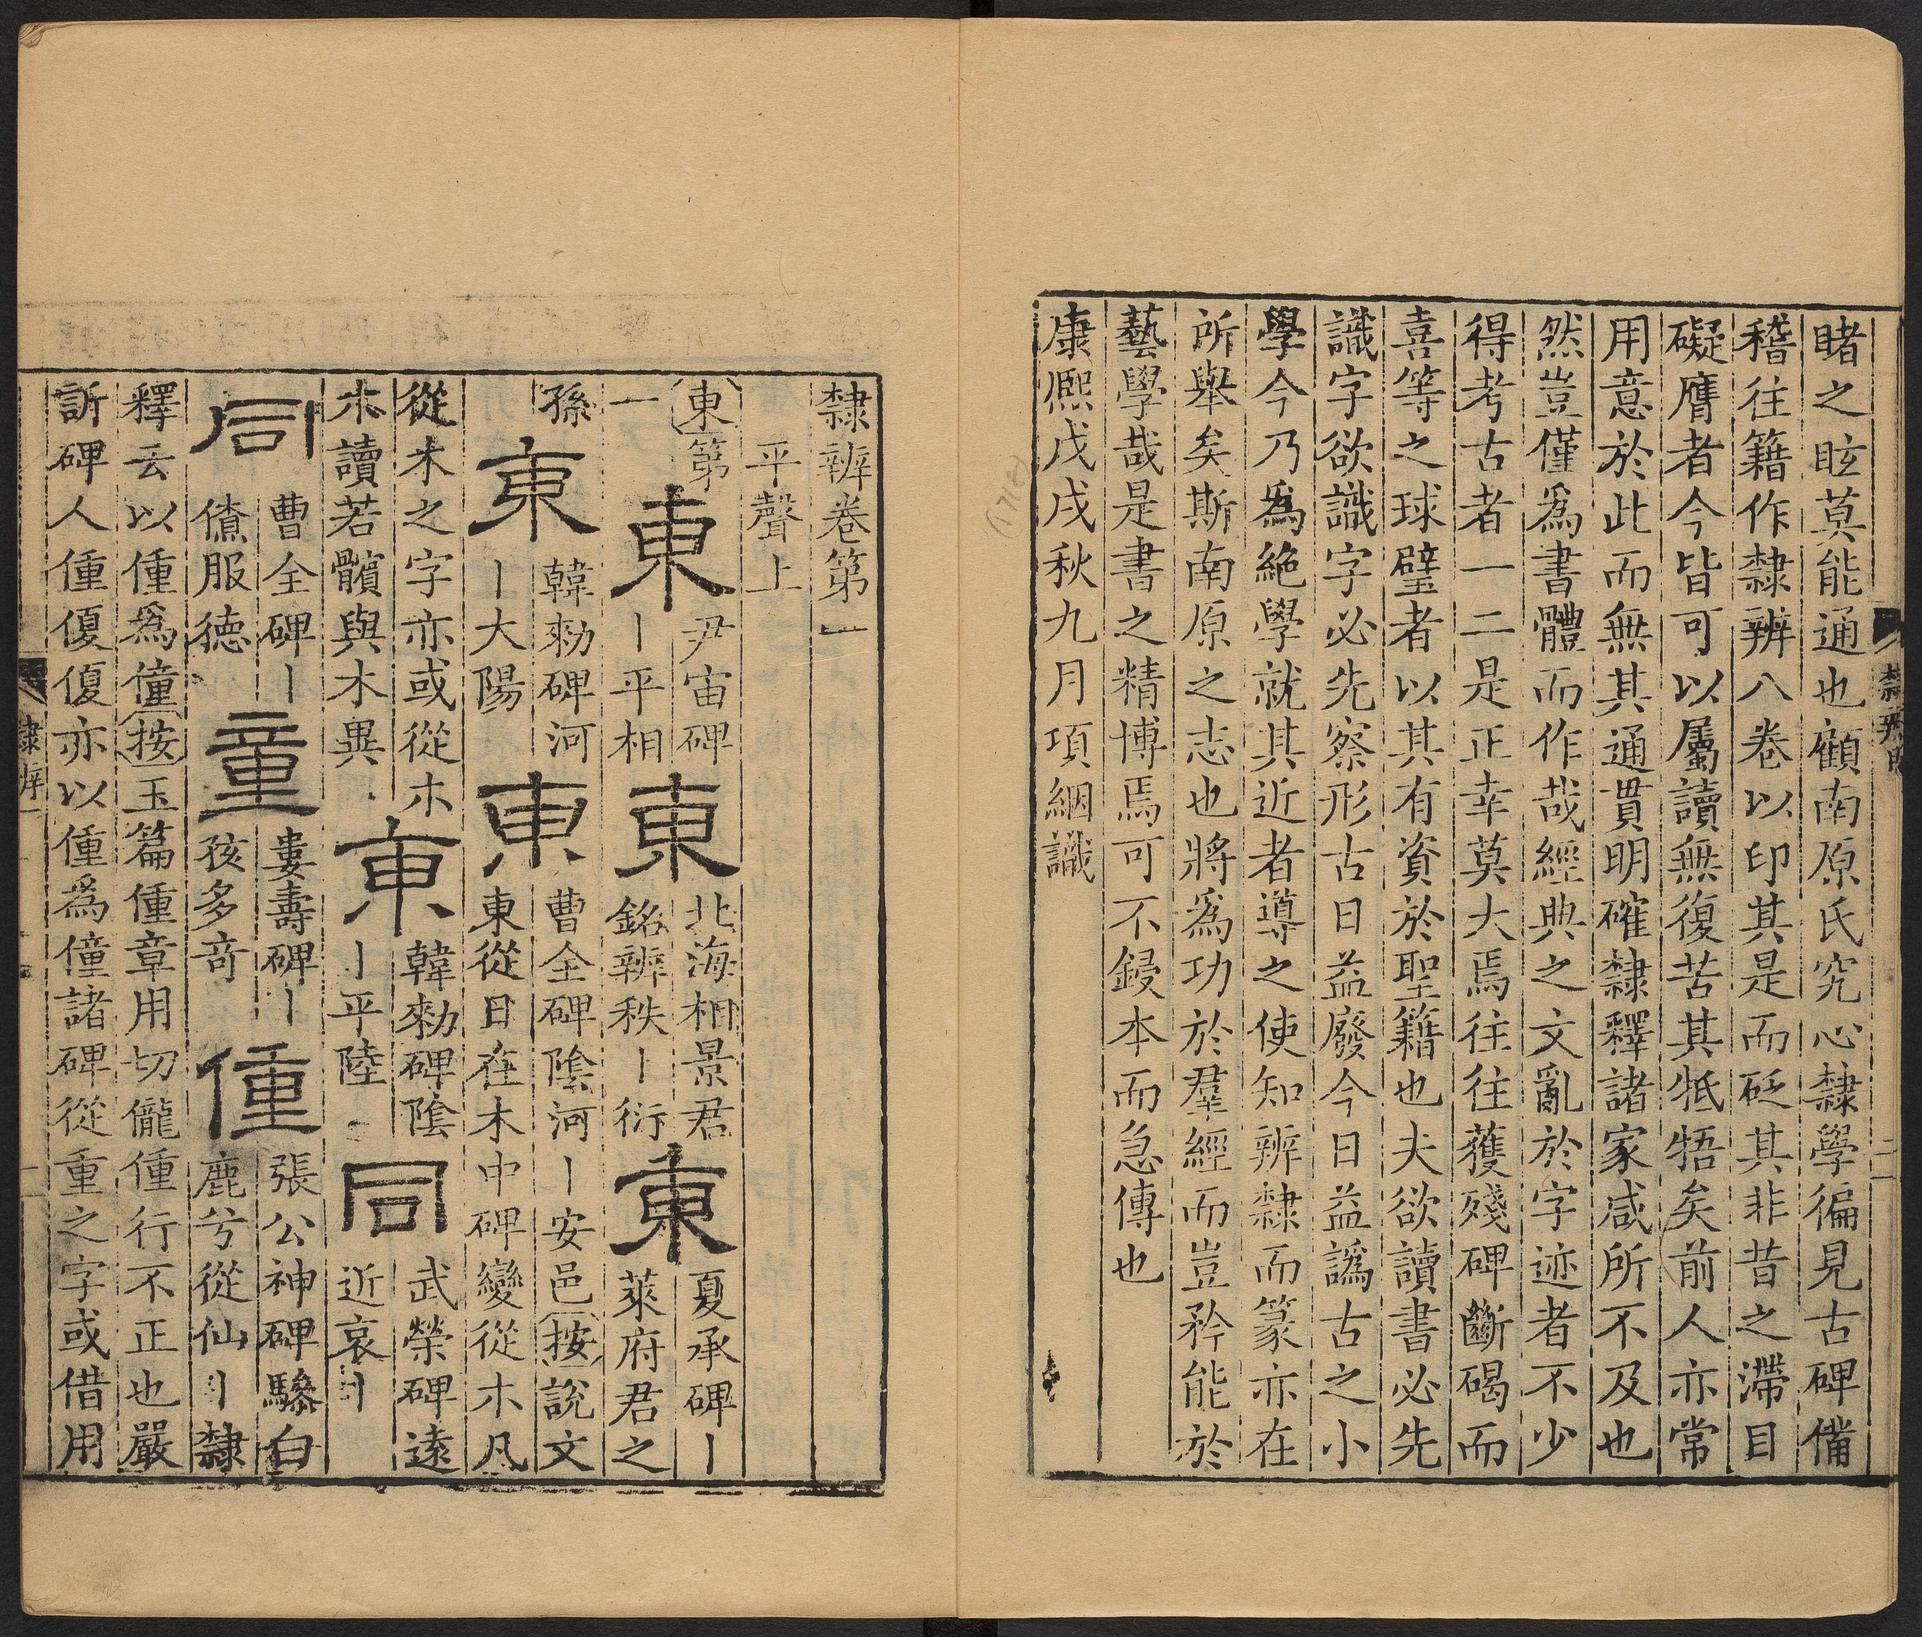 睹之眩莫能通也顧南原氏究心隸學徧見古碑備
稽往籍作隸辨八卷以印其是而砭其非昔之滯目
礙膺者今皆可以屬讀無復苦其牴牾矣前人亦常
用意於此而無其通貫明確隸釋諸家咸所不及也
然豈僅爲書體而作哉經典之文亂於字迹者不少
得考古者一二是正幸莫大焉往往獲殘碑斷碣而
喜等之球璧者以其有資於聖籍也夫欲讀書必先
識字欲識字必先察形古日益廢今日益譌古之小
學今乃爲絶學就其近者導之使知辨隸而篆亦在
所舉矣斯南原之志也將爲功於羣經而豈矜能於
藝學哉是書之精博焉可不鋟本而急傳也
康熙戊戌秋九月項絪識
(1718)
隸辨卷第一
平聲上
東第一
東 尹宙碑丨平相
東 北海相景君銘辨秩丨衍
東 夏承碑丨萊府君之孫
東 韓勑碑河丨大陽
東 曹全碑陰河丨安邑按說文東從日在木中碑變從木凡
從木之字亦或從木
木讀若髕與木異
東 韓勑碑陰丨平陸
同 武榮碑遠近哀丨
同 曹全碑丨僚服德
童 婁壽碑丨孩多奇
僮 張公神碑驂白鹿兮從仙丨隸
釋云以僮爲僮按玉篇僮章用切儱僮行不正也嚴
訢碑人僮優優亦以僮爲僮諸碑從重之字或借用